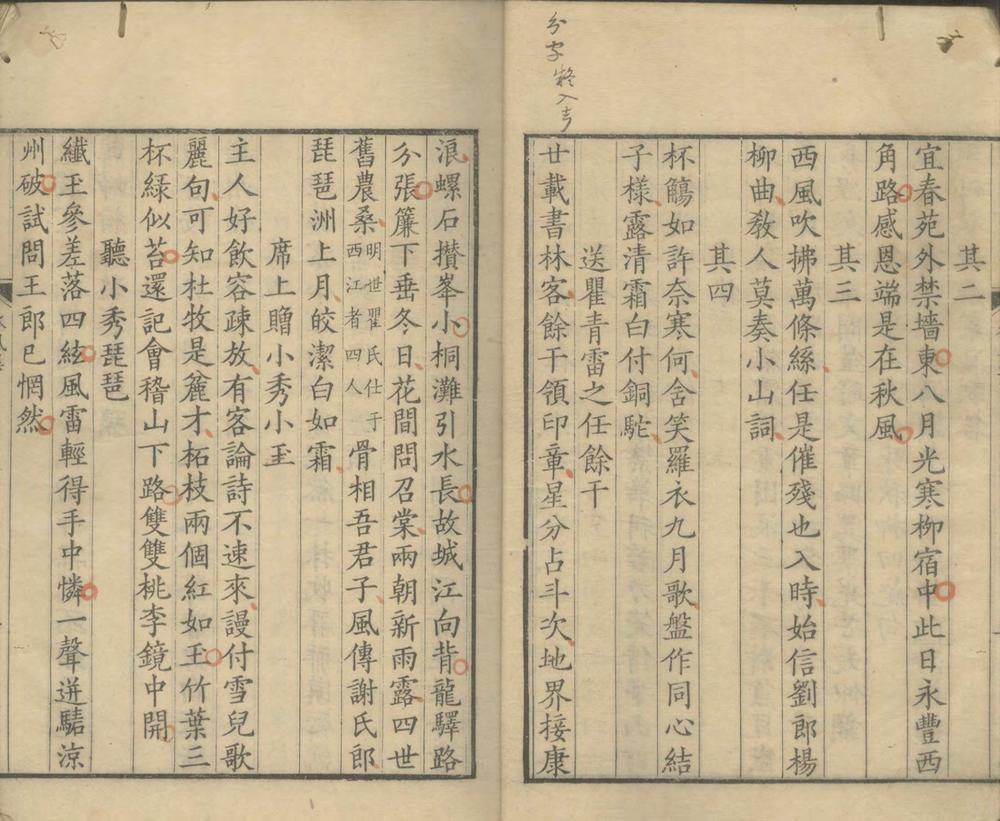 其二
宜春苑外禁墻東八月光寒柳宿中此日永豐西
角路感恩端是在秋風
其三
西風吹拂萬條絲任是催殘也入時始信劉郎楊
柳曲敎人莫奏小山詞
其四
杯觴如許奈寒何含笑羅衣九月歌盤作同心結
子樣露清霜白付銅駝
送瞿青雷之任餘干
廿載書林客餘干領印章星分占斗次地界接康
分字
入
浪螺石攅峯小桐灘引水長故城江向背龍驛路
分張簾下垂冬日花間問召棠兩朝新雨露四世
舊農桑明世瞿氏仕于西江者四人骨相吾君子風傳謝氏郎
琵琶洲上月皎潔白如霜
席上贈小秀小玉
主人好飮容疎放有客論詩不速來謾付雪兒歌
麗句可知杜牧是麄才柘枝兩個紅如玉竹葉三
杯緑似苔還記會稽山下路雙雙桃李鏡中開
聽小秀琵琶
纖玉參差落四絃風雷輕得手中憐一聲迸驖涼
州破試問王郎已惘然